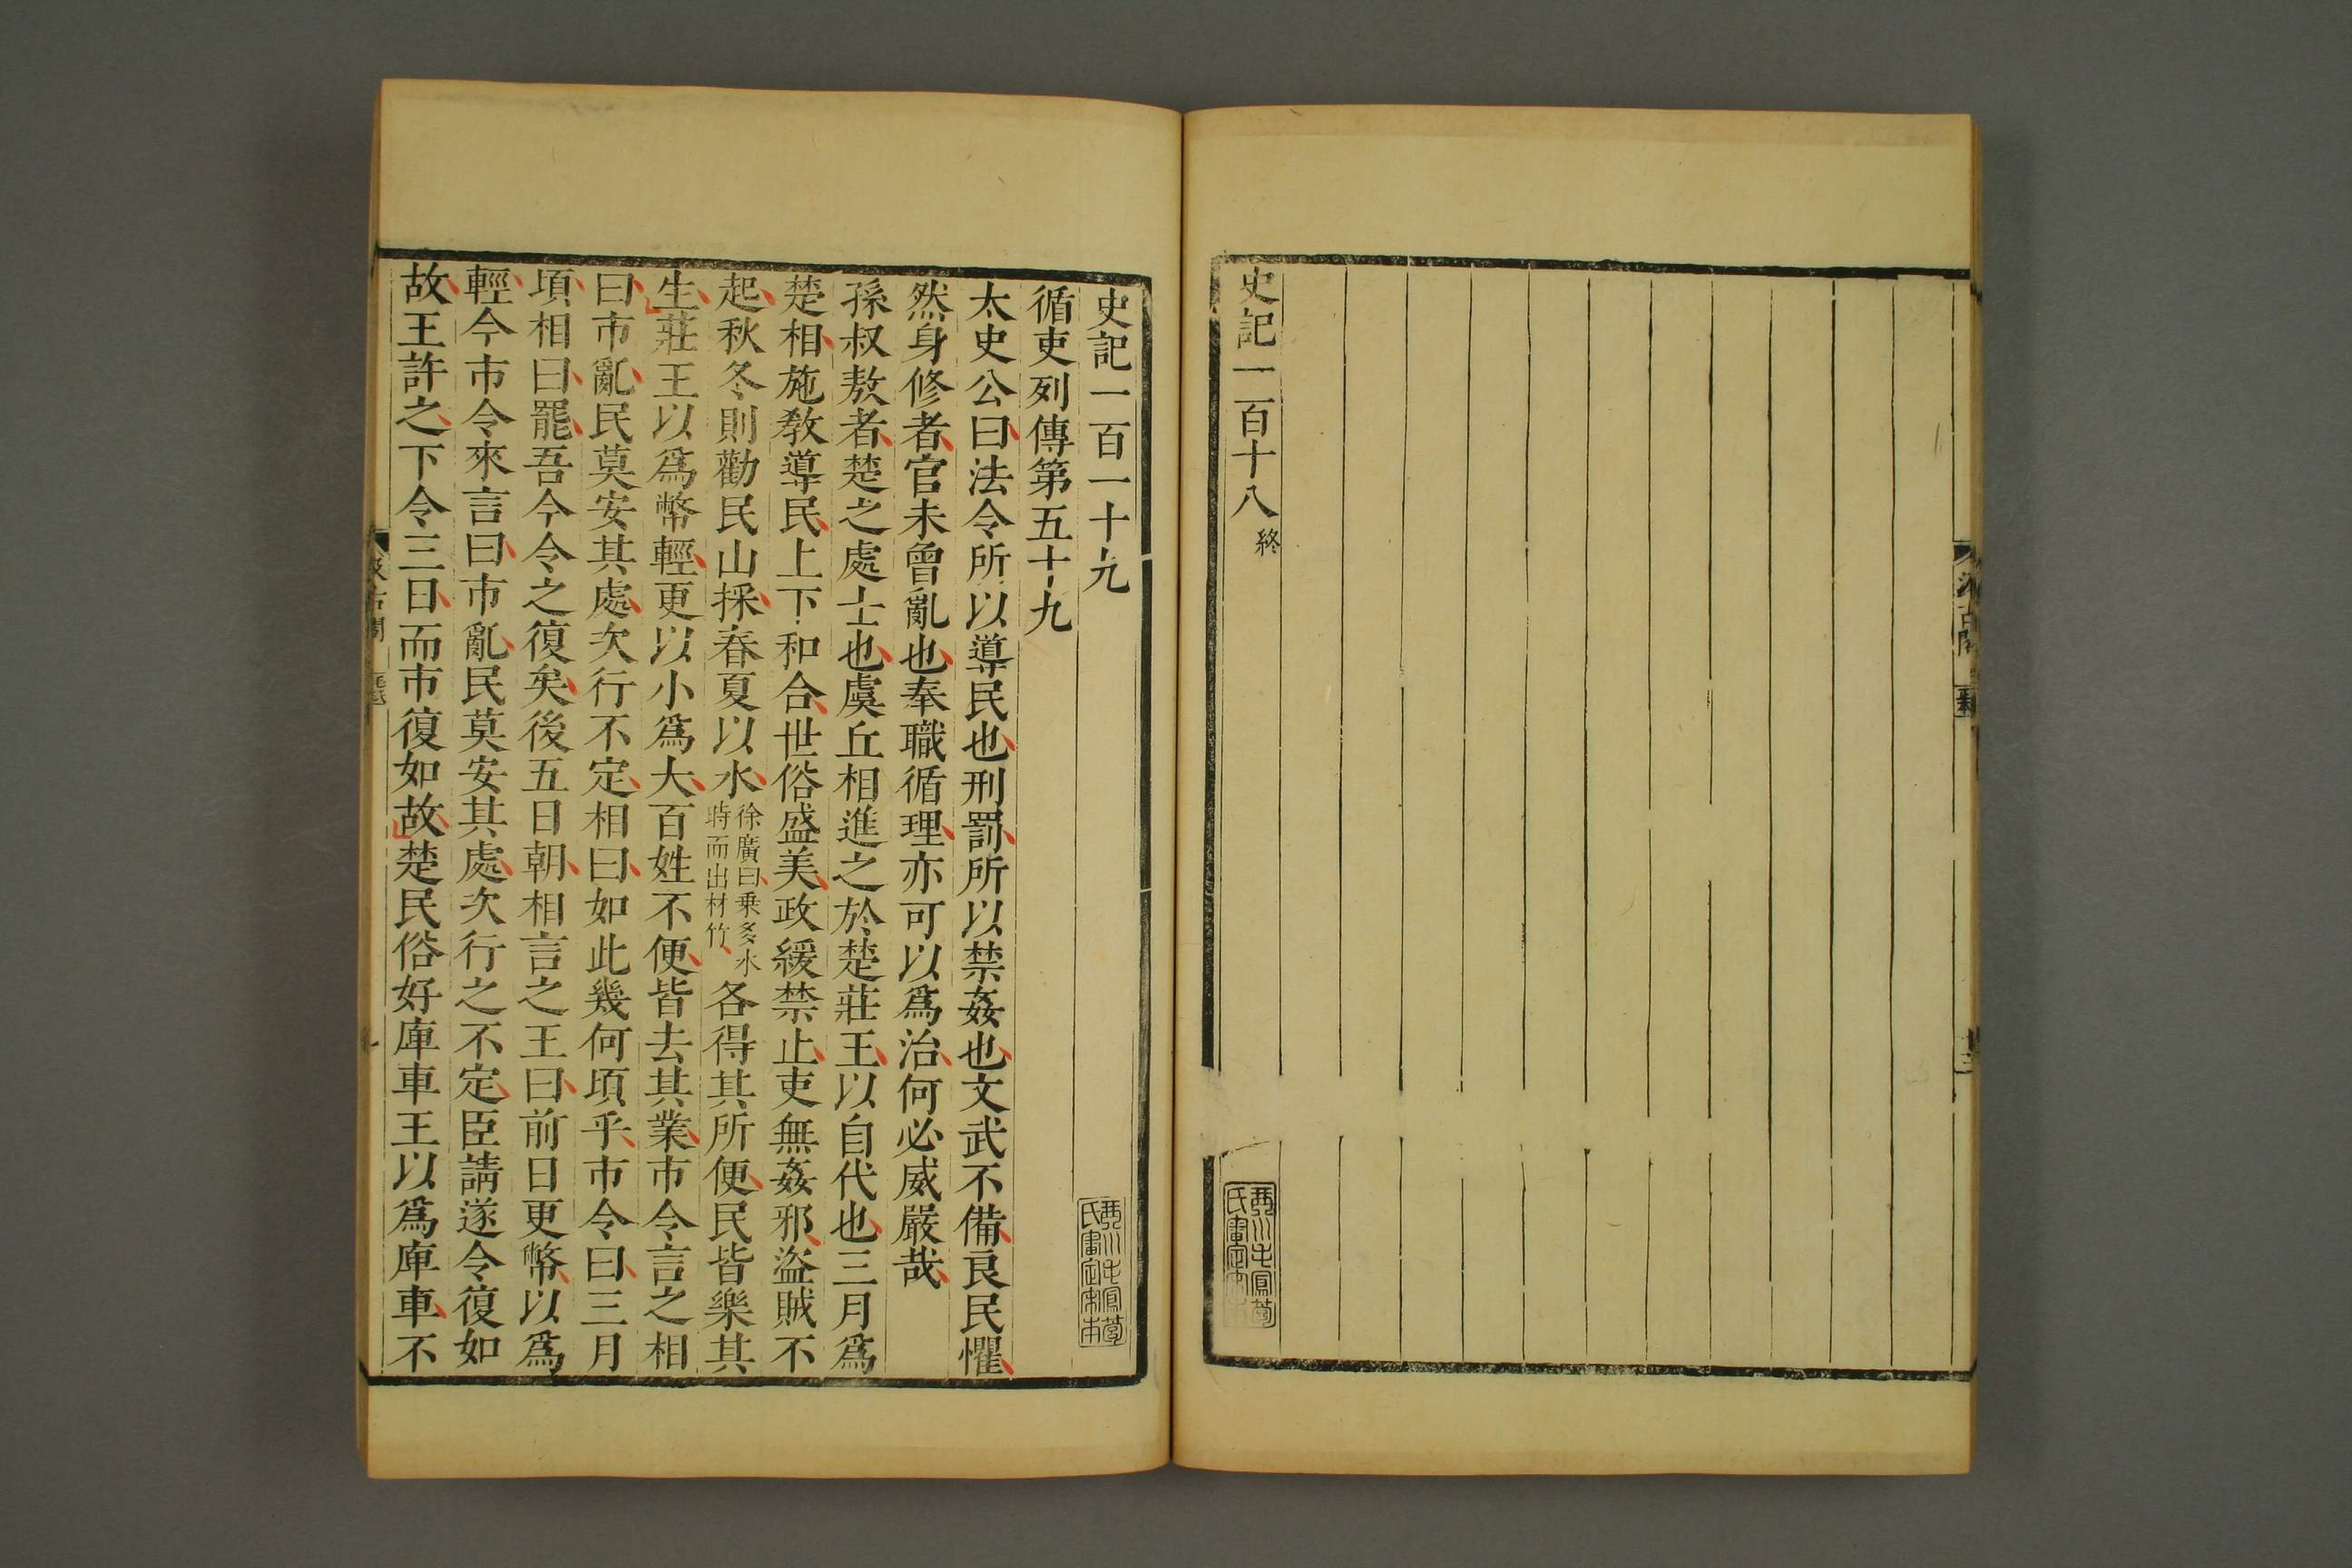 史記一百十八終
史記一百一十九
循吏列傳第五十九
太史公曰法令所以導民也刑罰所以禁姦也文武不備良民懼
然身修者官未曾亂也奉職循理亦可以爲治何必威嚴哉
孫叔敖者楚之處士也虞丘相進之於楚莊王以自代也三月爲
楚相施教導民上下和合世俗盛美政緩禁止吏無姦邪盜賊不
起秋冬則勸民山採春夏以水徐廣曰乗多水時而出材竹各得其所便民皆樂其
生莊王以爲幣輕更以小爲大百姓不便皆去其業市令言之相
曰市亂民莫安其處次行不定相曰如此幾何頃乎市令曰三月
頃相曰罷吾今令之復矣後五日朝相言之王曰前日更幣以爲
輕今市令來言曰市亂民莫安其處次行之不定臣請遂令復如
故王許之下令三日而市復如故楚民俗好庳車王以爲庳車不